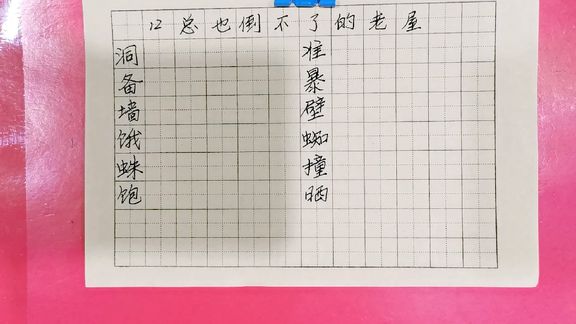 12 总也倒不了的老屋
洞 准
备 暴
墙 壁
饿 蜘
蛛 撞
饱 晒